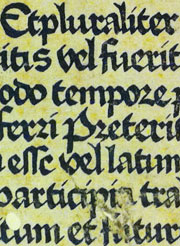 Et pluraliter
itis vel fuerit
odo tempore p
ferri Preteri
n esse vel latum
participia tra
tum et futur